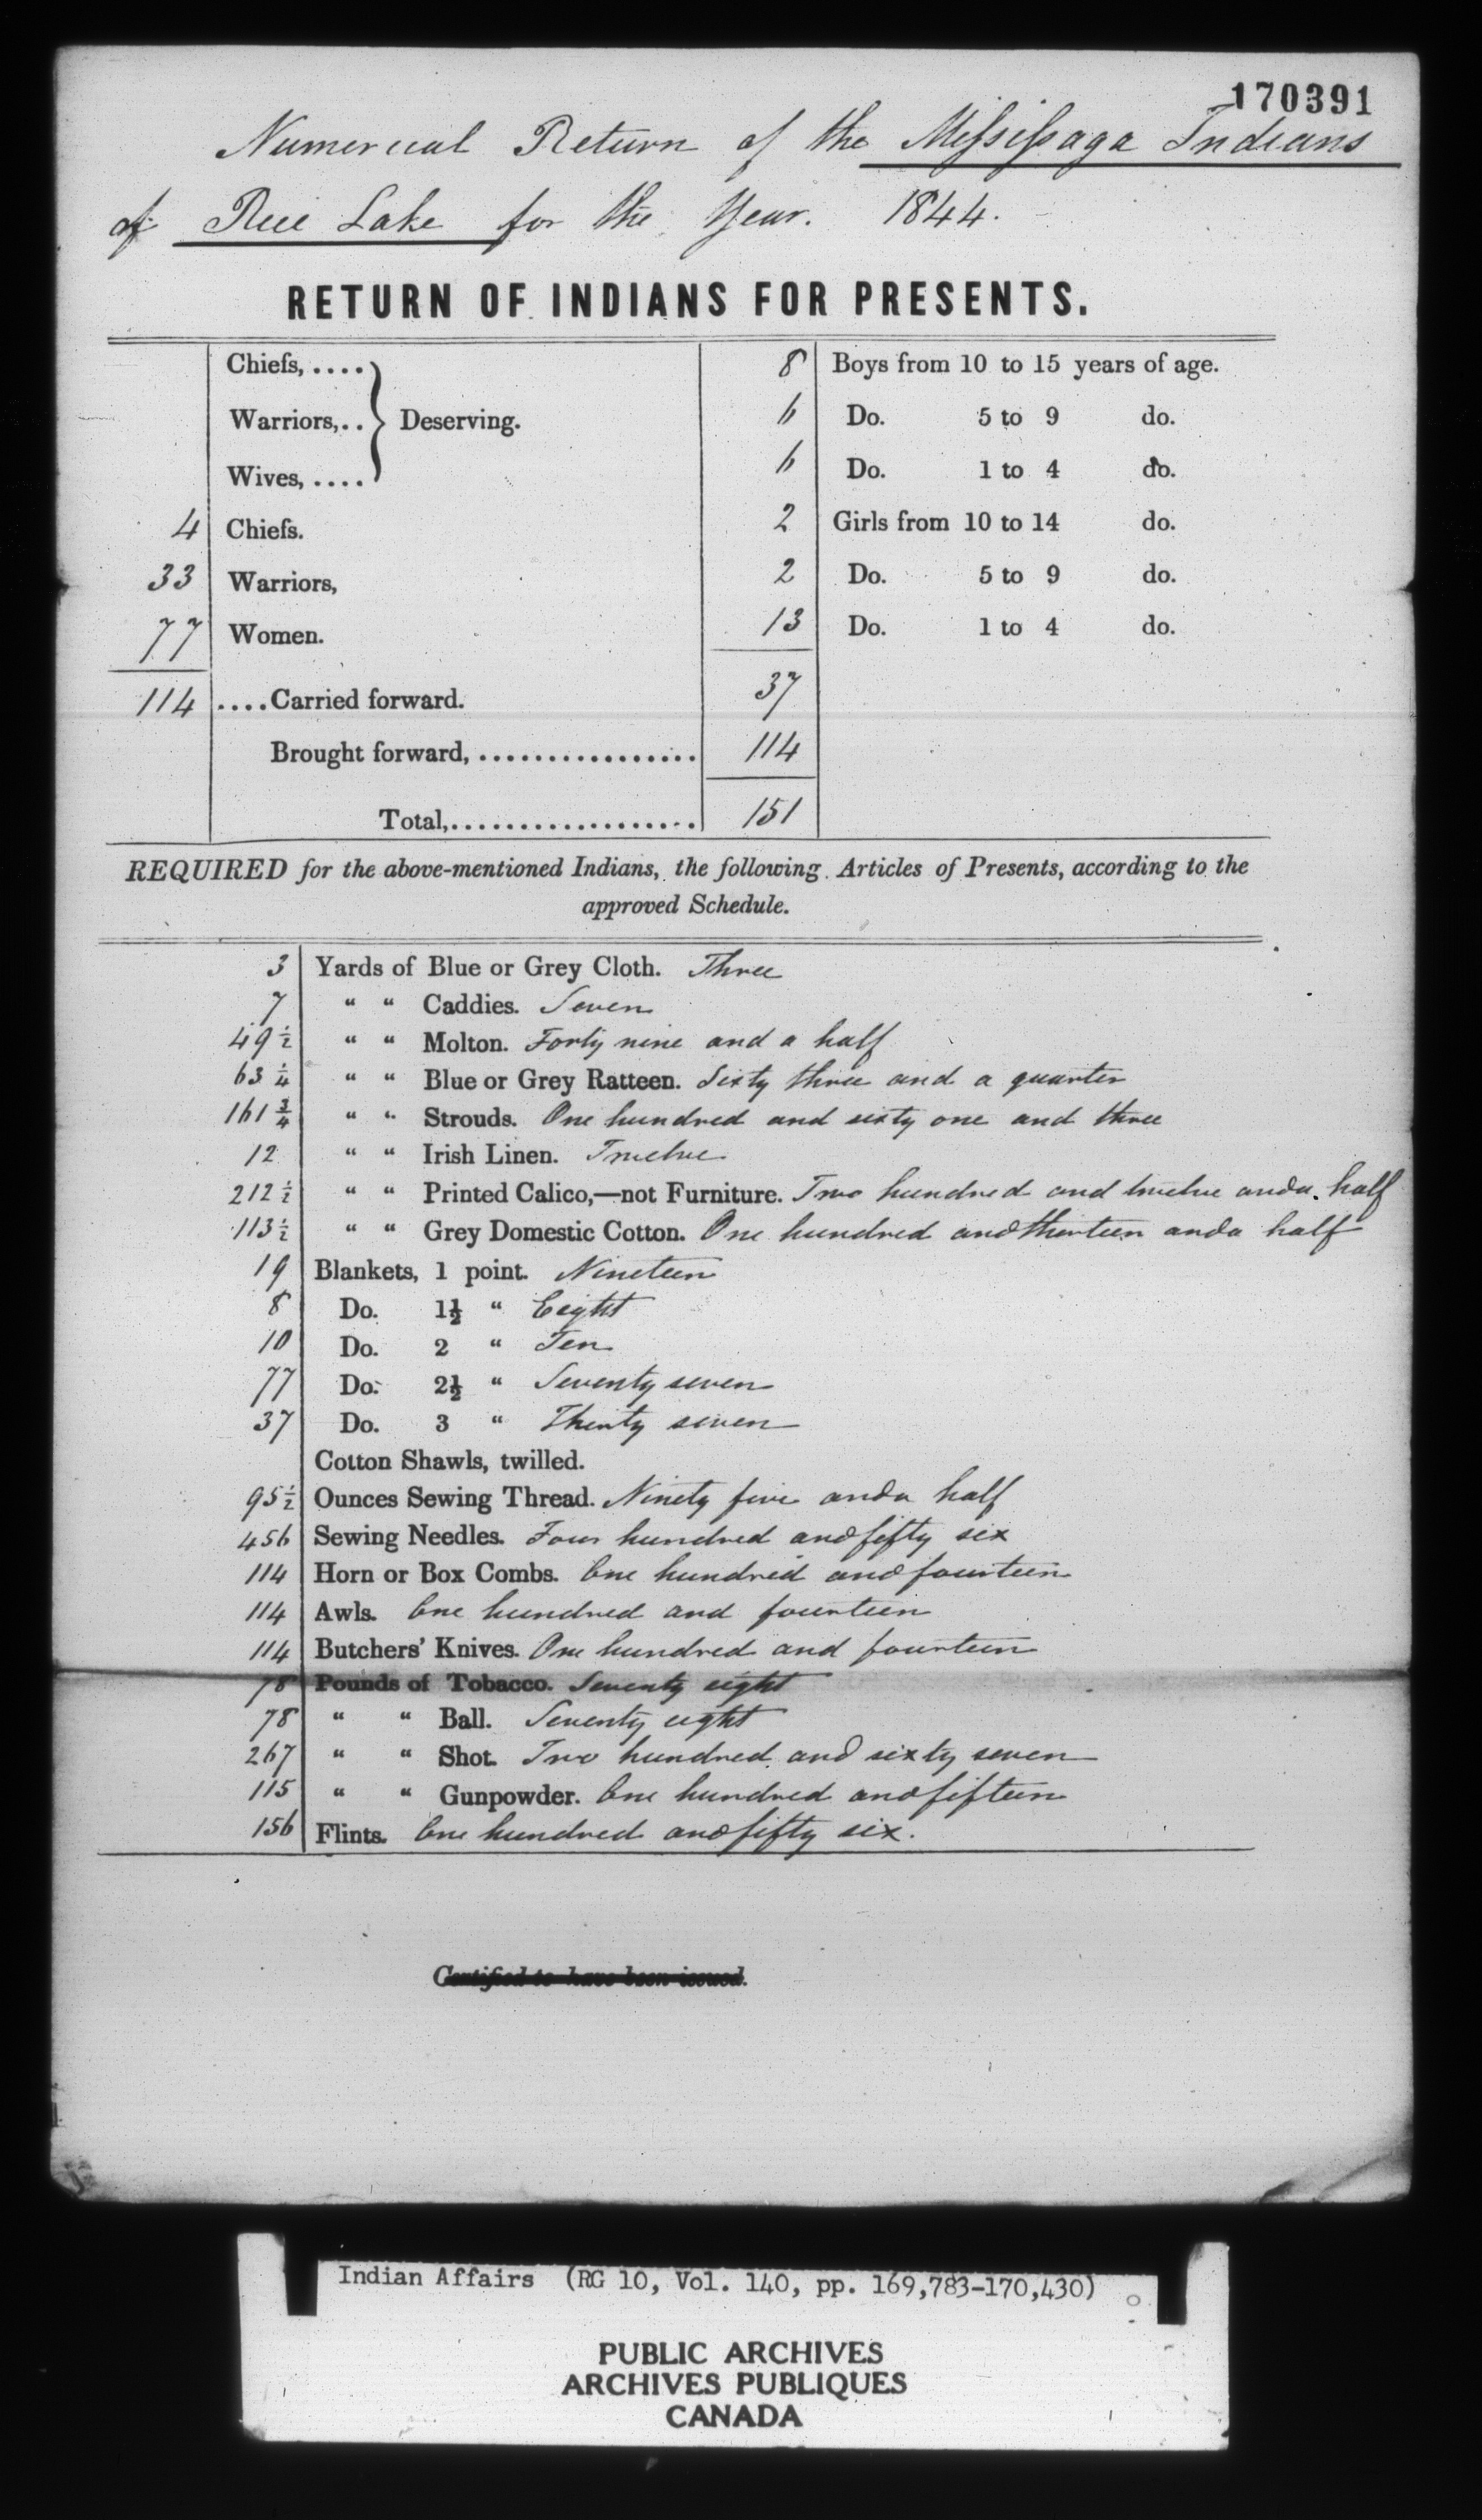 170391
Numerical Return of the Mississaga Indians
of Rice Lake for the Year. 1844.
RETURN OF INDIANS FOR PRESENTS.
Chiefs, .... 8 Boys from 10 to 15 years of age.
Warriors, .. Deserving. 6 Do. 5 to 9 do.
Wives, .... 6 Do. 1 to 4 do.
4 Chiefs. 2 Girls from 10 to 14 do.
33 Warriors, 2 Do. 5 to 9 do.
77 Women. 13 Do. 1 to 4 do.
114 ....Carried forward. 37
Brought forward, ................ 114
Total,................... 151
REQUIRED for the above-mentioned Indians, the following Articles of Presents, according to the
approved Schedule.
3 Yards of Blue or Grey Cloth. Three
7 “ “ Caddies. Seven
49½ “ “ Molton. Forty nine and a half
63¼ “ “ Blue or Grey Ratteen. Sixty three and a quarter
161¾ “ “ Strouds. One hundred and sixty one and three
12 “ “ Irish Linen. Twelve
212½ “ “ Printed Calico,—not Furniture. Two hundred and twelve and a half
113½ “ “ Grey Domestic Cotton. One hundred and thirteen and a half
19 Blankets, 1 point. Nineteen
8 Do. 1½ “ Eight
10 Do. 2 “ Ten
77 Do. 2½ “ Seventy seven
37 Do. 3 “ Thirty seven
Cotton Shawls, twilled.
95½ Ounces Sewing Thread. Ninety five and a half
456 Sewing Needles. Four hundred and fifty six
114 Horn or Box Combs. One hundred and fourteen
114 Awls. One hundred and fourteen
114 Butchers’ Knives. One hundred and fourteen
78 Pounds of Tobacco. Seventy eight
78 “ “ Ball. Seventy eight
267 “ “ Shot. Two hundred and sixty seven
115 “ “ Gunpowder. One hundred and fifteen
156 Flints. One hundred and fifty six.
Certified to have been issued.
Indian Affairs (RG 10, Vol. 140, pp. 169,783-170,430)
PUBLIC ARCHIVES
ARCHIVES PUBLIQUES
CANADA